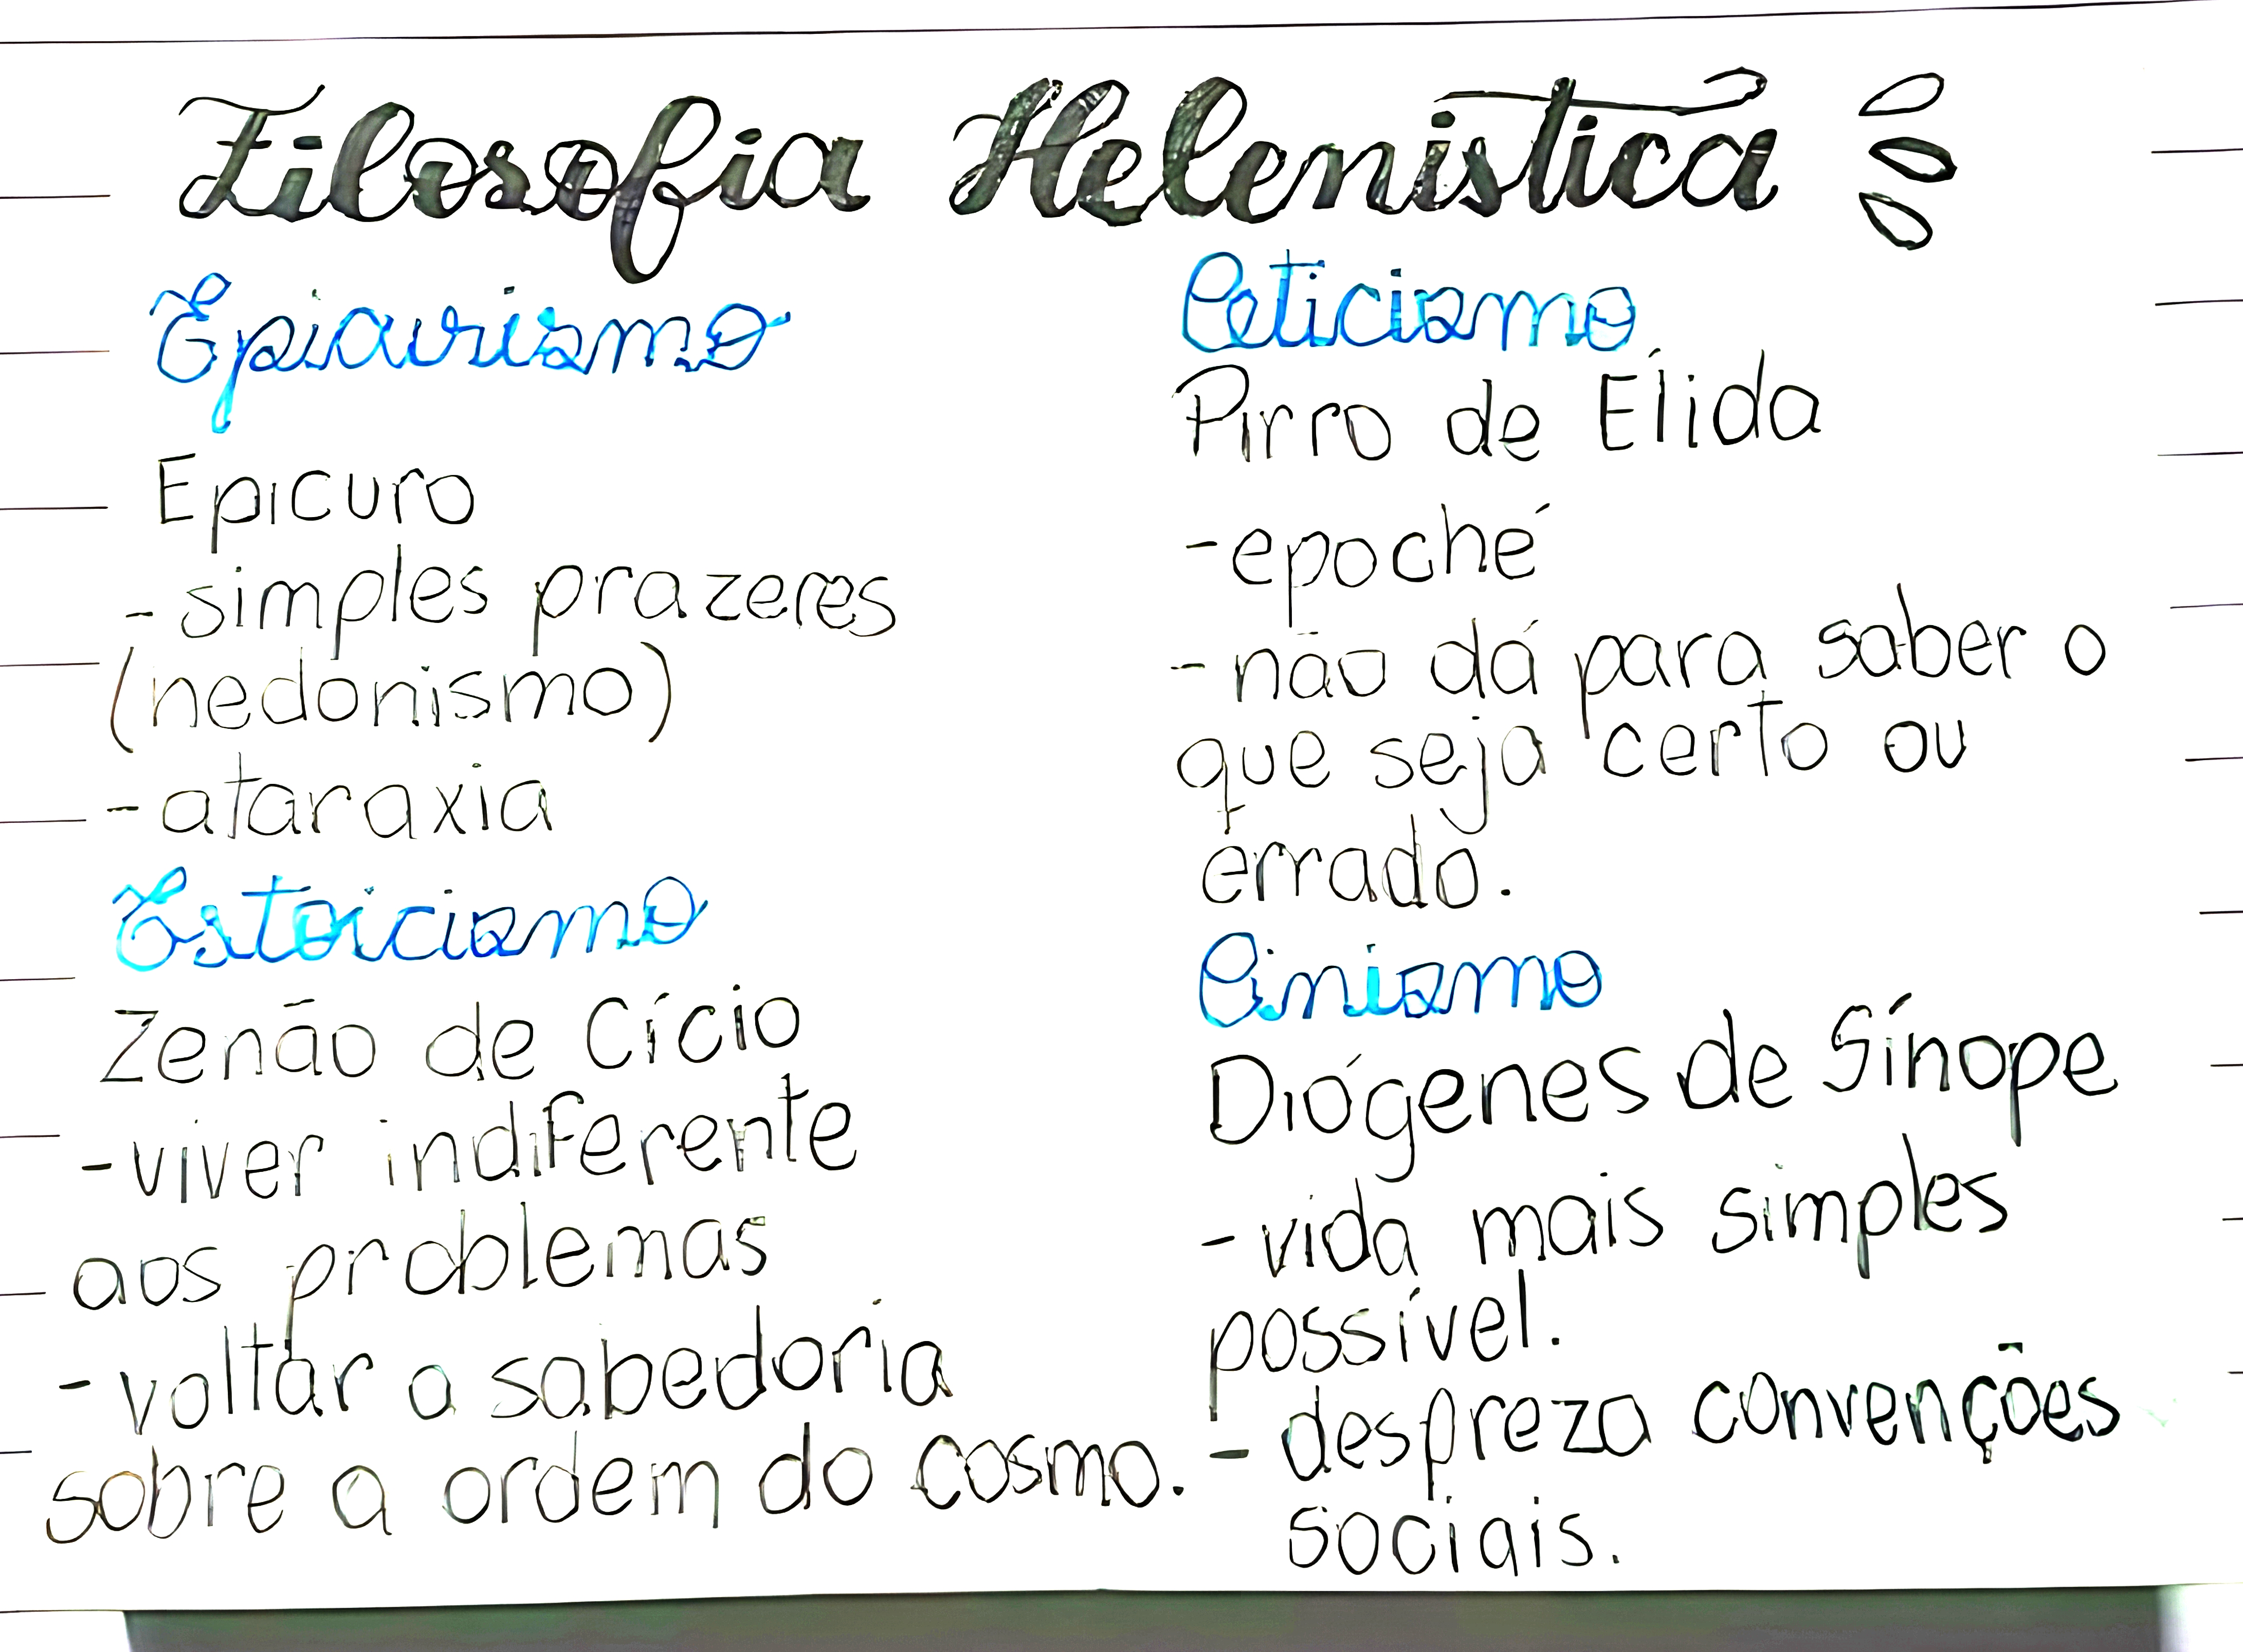 Filosofia Helenística
Epicurismo
Epicuro
- simples prazeres
(hedonismo)
- ataraxia
Estoicismo
Zenão de Cício
- viver indiferente
aos problemas
- voltar a sabedoria
sobre a ordem do cosmo.
Ceticismo
Pirro de Élida
- epoché
- não dá para saber o
que seja certo ou
errado.
Cinismo
Diógenes de Sínope
- vida mais simples
possível.
- despreza convenções
sociais.